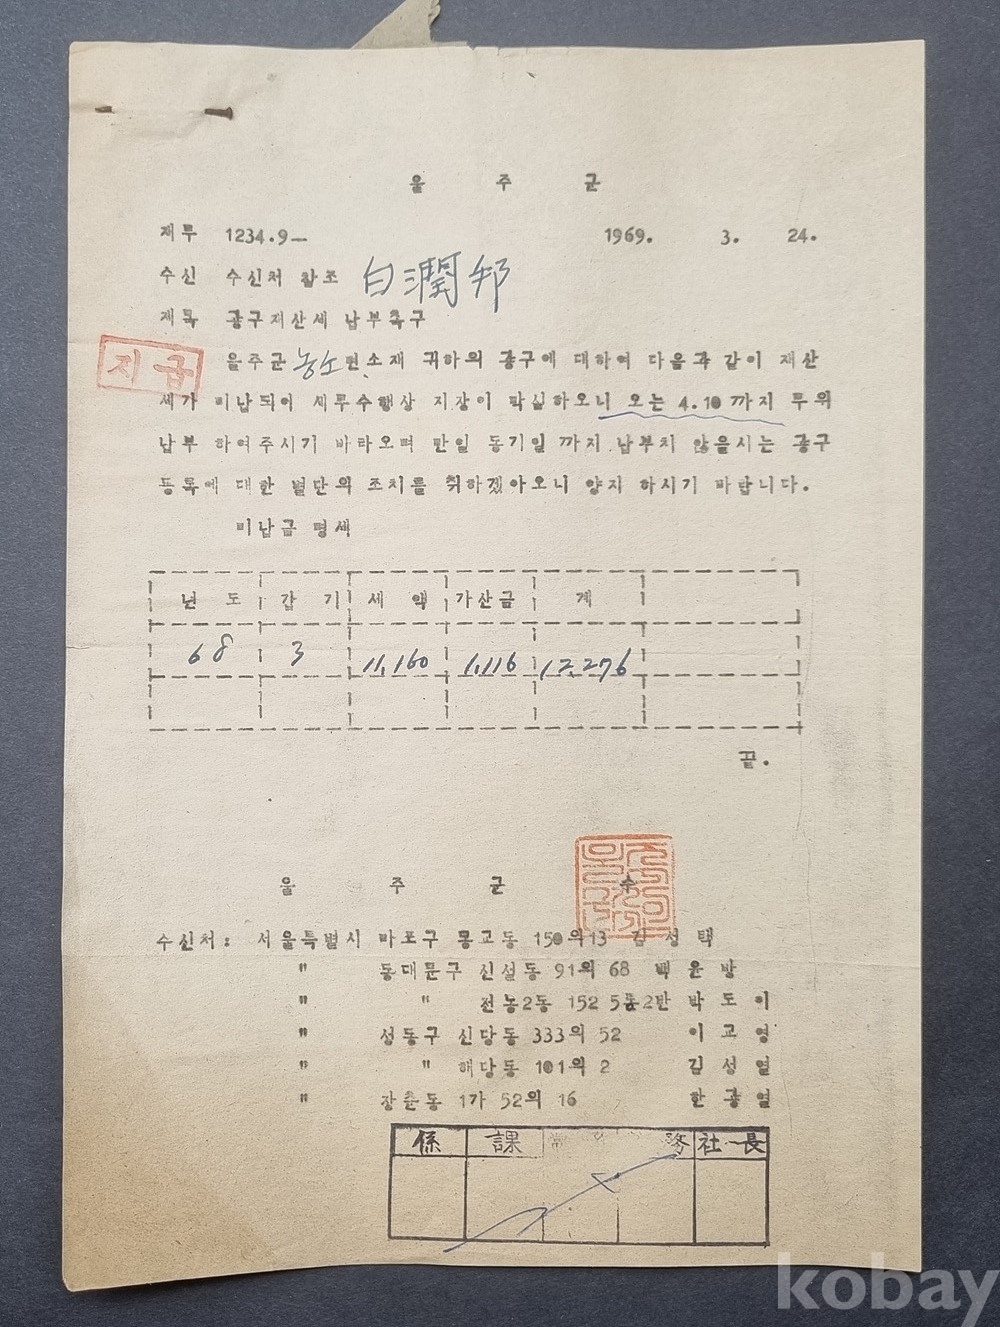 울 주 군
재무 1234.9— 1969. 3. 24.
수신 수신처 참조 白潤邦
제목 광구재산세 납부촉구
지급
울주군 농소면소재 귀하의 광구에 대하여 다음과 같이 재산
세가 미납되어 세무수행상 지장이 막심하오니 오는 4.10 까지 무위
납부 하여주시기 바라오며 만일 동기일 까지 납부치 않을시는 광구
등록에 대한 별단의 조치를 취하겠아오니 양지 하시기 바랍니다.
미납금 명세
년 도 갑 기 세 액 가산금 계
68 3 11,160 1,116 12,276
끝.
울 주 군 수
수신처: 서울특별시 마포구 몽교동 150의13 김 성 택
" 동대문구 신설동 91의 68 백 윤 방
" " 전농2동 152 5통2반 박 도 이
" 성동구 신당동 333의 52 이 교 영
" " 해당동 101의 2 김 성 열
" 장춘동 1가 52의 16 한 광 열
係 課 常 務 社 長
kobay